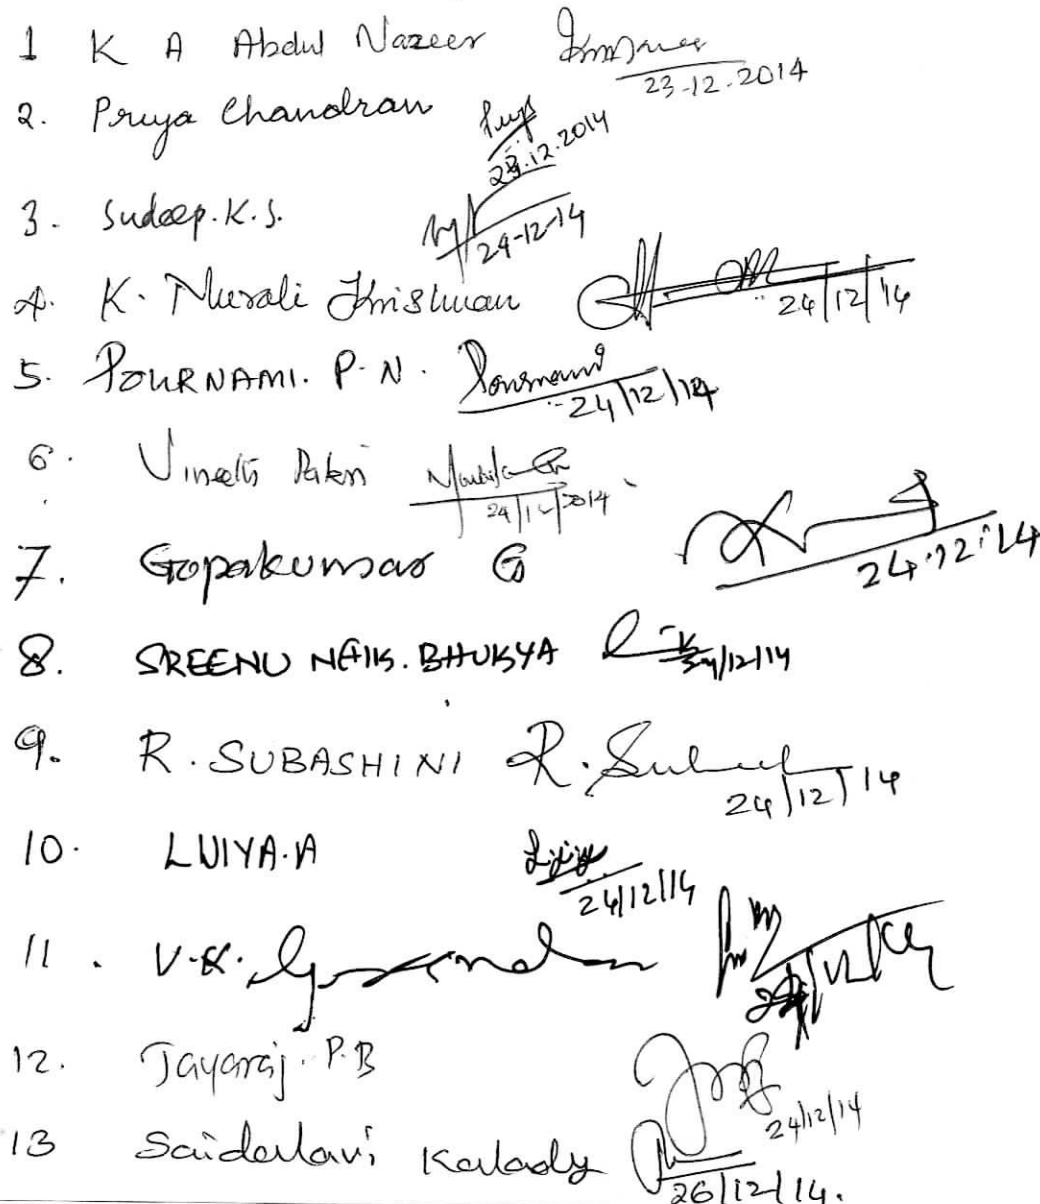 1 K A Abdul Nazeer
23-12-2014
2. Priya Chandran
23.12.2014
3. Sudeep.K.S.
24-12-14
4. K. Murali Krishnan 24/12/14
5. POURNAMI. P. N. Pournami
24/12/14
6. Vineeth
24/12/2014
7. Gopakumar G 24.12.14
8. SREENU NAIK. BHUKYA
24/12/14
9. R. SUBASHINI R.
24/12/14
10. LIJIYA.A
24/12/14
11. V.K. Govindan
12. Jayaraj. P.B
24/12/14
13 Saidalavi Kalady
26/12/14.